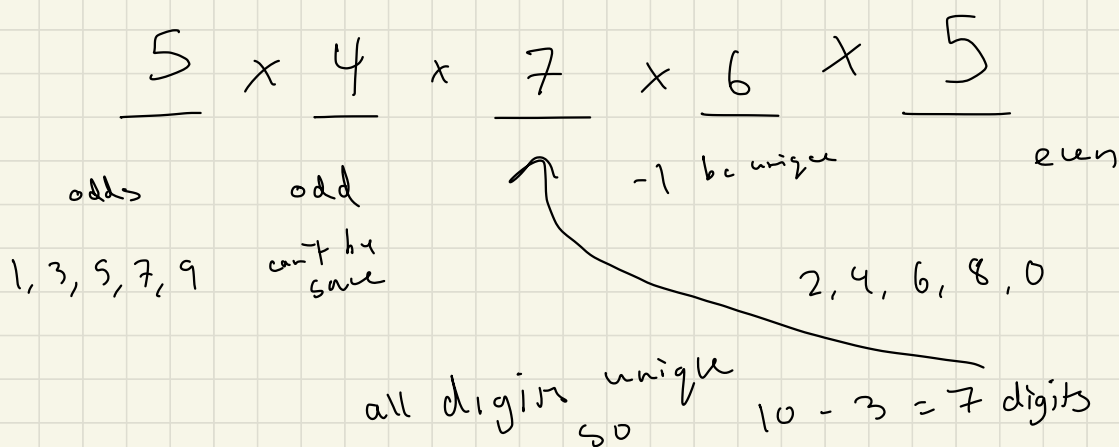 5 x 4 x 7 x 6 x 5
odds odd -1 bc unique even
1, 3, 5, 7, 9 can't be same 2, 4, 6, 8, 0
all digits unique
so 10 - 3 = 7 digits